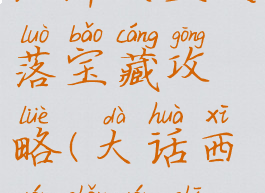 luò bǎo cáng gōng
落宝藏攻
lüè dà huà xī
略(大话西